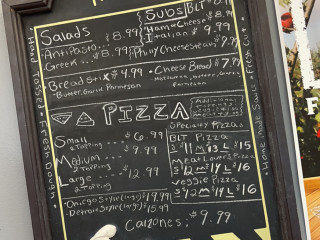 Salads
-Antipasto...$8.99
-Greek...$8.99
-Bread Stix $4.99
-Butter, Garlic Parmesan
Subs BLT $8.99
-Ham+Cheese
-Italian $9.99
-Philly Cheesesteak
-Cheese Bread $7.99
PIZZA
Small $6.99
2 Topping
Medium
2 Topping $9.99
Large
2 Topping $12.99
-Chicago Style (large) $19.99
-Detroit Style (large) $15.99
Specialty Pizzas
BLT Pizza
S $11 M $13 L $15
Meat Lovers Pizza
S $12 M $14 L $16
Veggie Pizza
S $12 M $14 L $16
Calzones: $9.99
Hand Tossed
Fresh Dough
Home Made Sauce
Fresh Cut